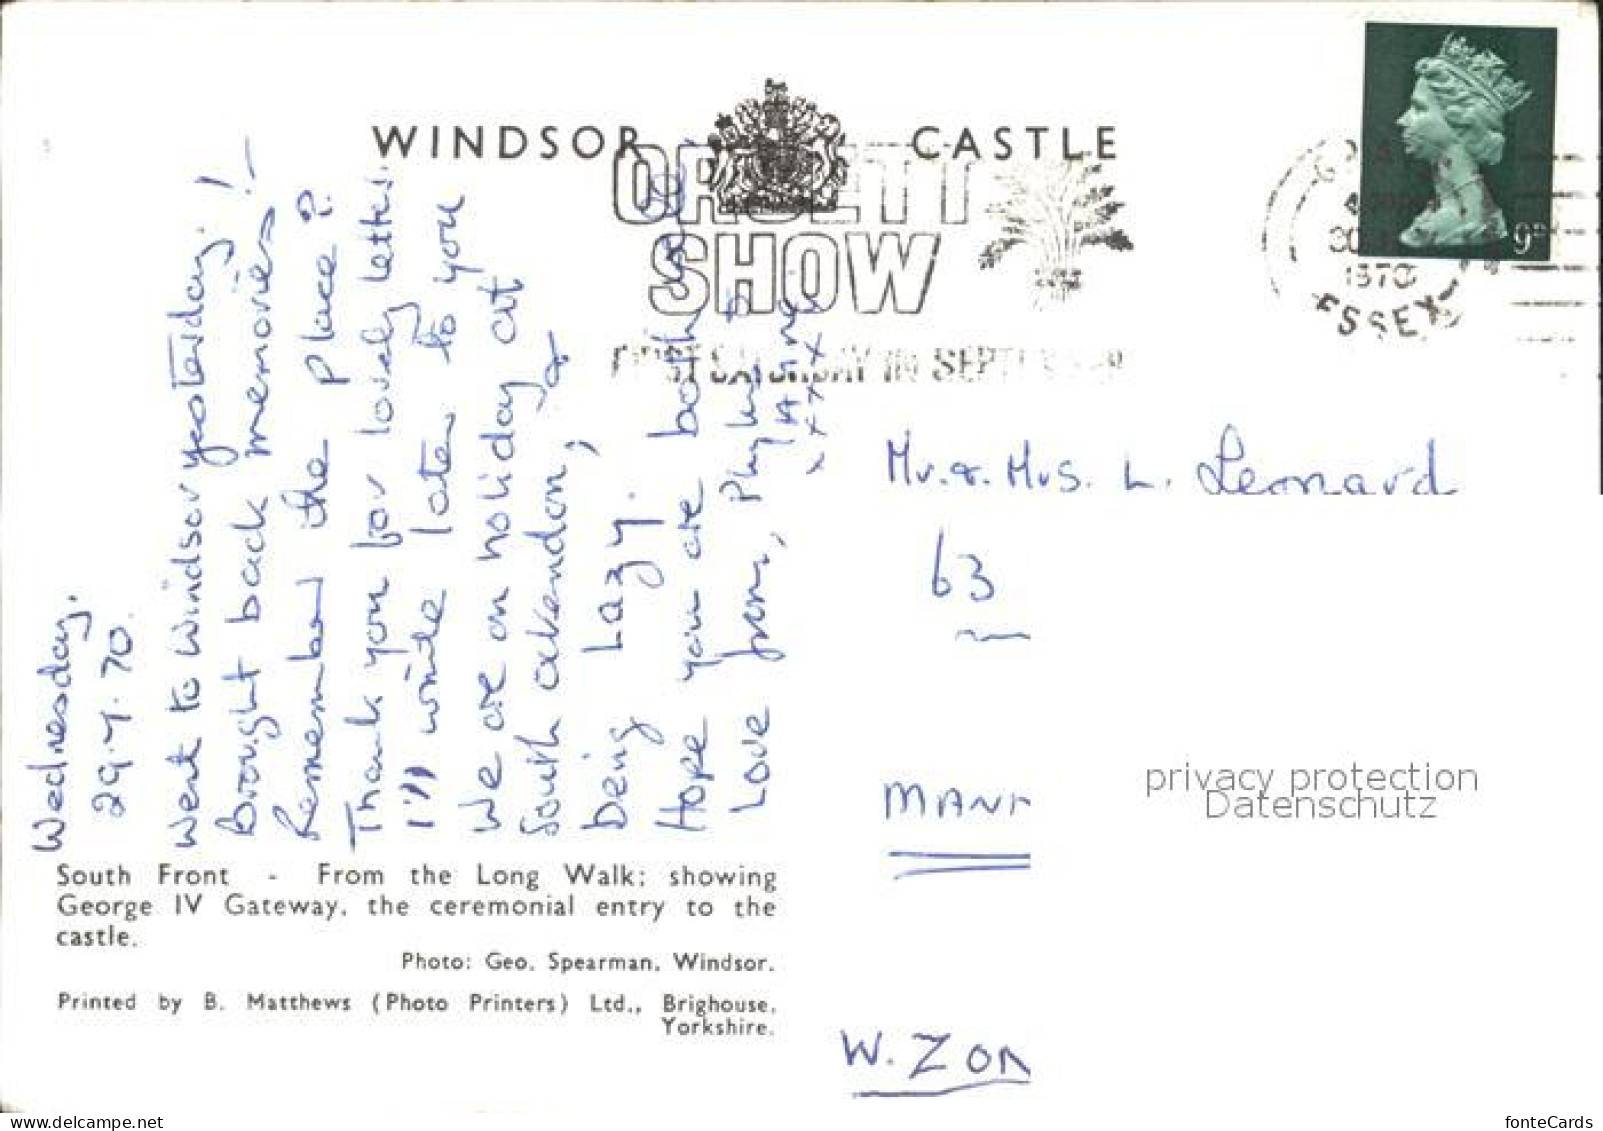 WINDSOR CASTLE
ORSETT
SHOW
FIRST SATURDAY IN SEPTEMBER
1970
ESSEX
9D
Wednesday.
29.7.70.
Went to Windsor yesterday!
Brought back memories! -
Remember the place?
Thank you for lovely letter.
I'll write later to you
We are on holiday at
South Ockendon, &
being Lazy.
Hope you are both well
Love from, Phyllis &
xxxx
Mr. & Mrs. L. Leonard
63
MANN
W. ZON
South Front - From the Long Walk; showing
George IV Gateway, the ceremonial entry to the
castle.
Photo: Geo. Spearman, Windsor.
Printed by B. Matthews (Photo Printers) Ltd., Brighouse,
Yorkshire.
privacy protection
Datenschutz
www.delcampe.net
fonteCards